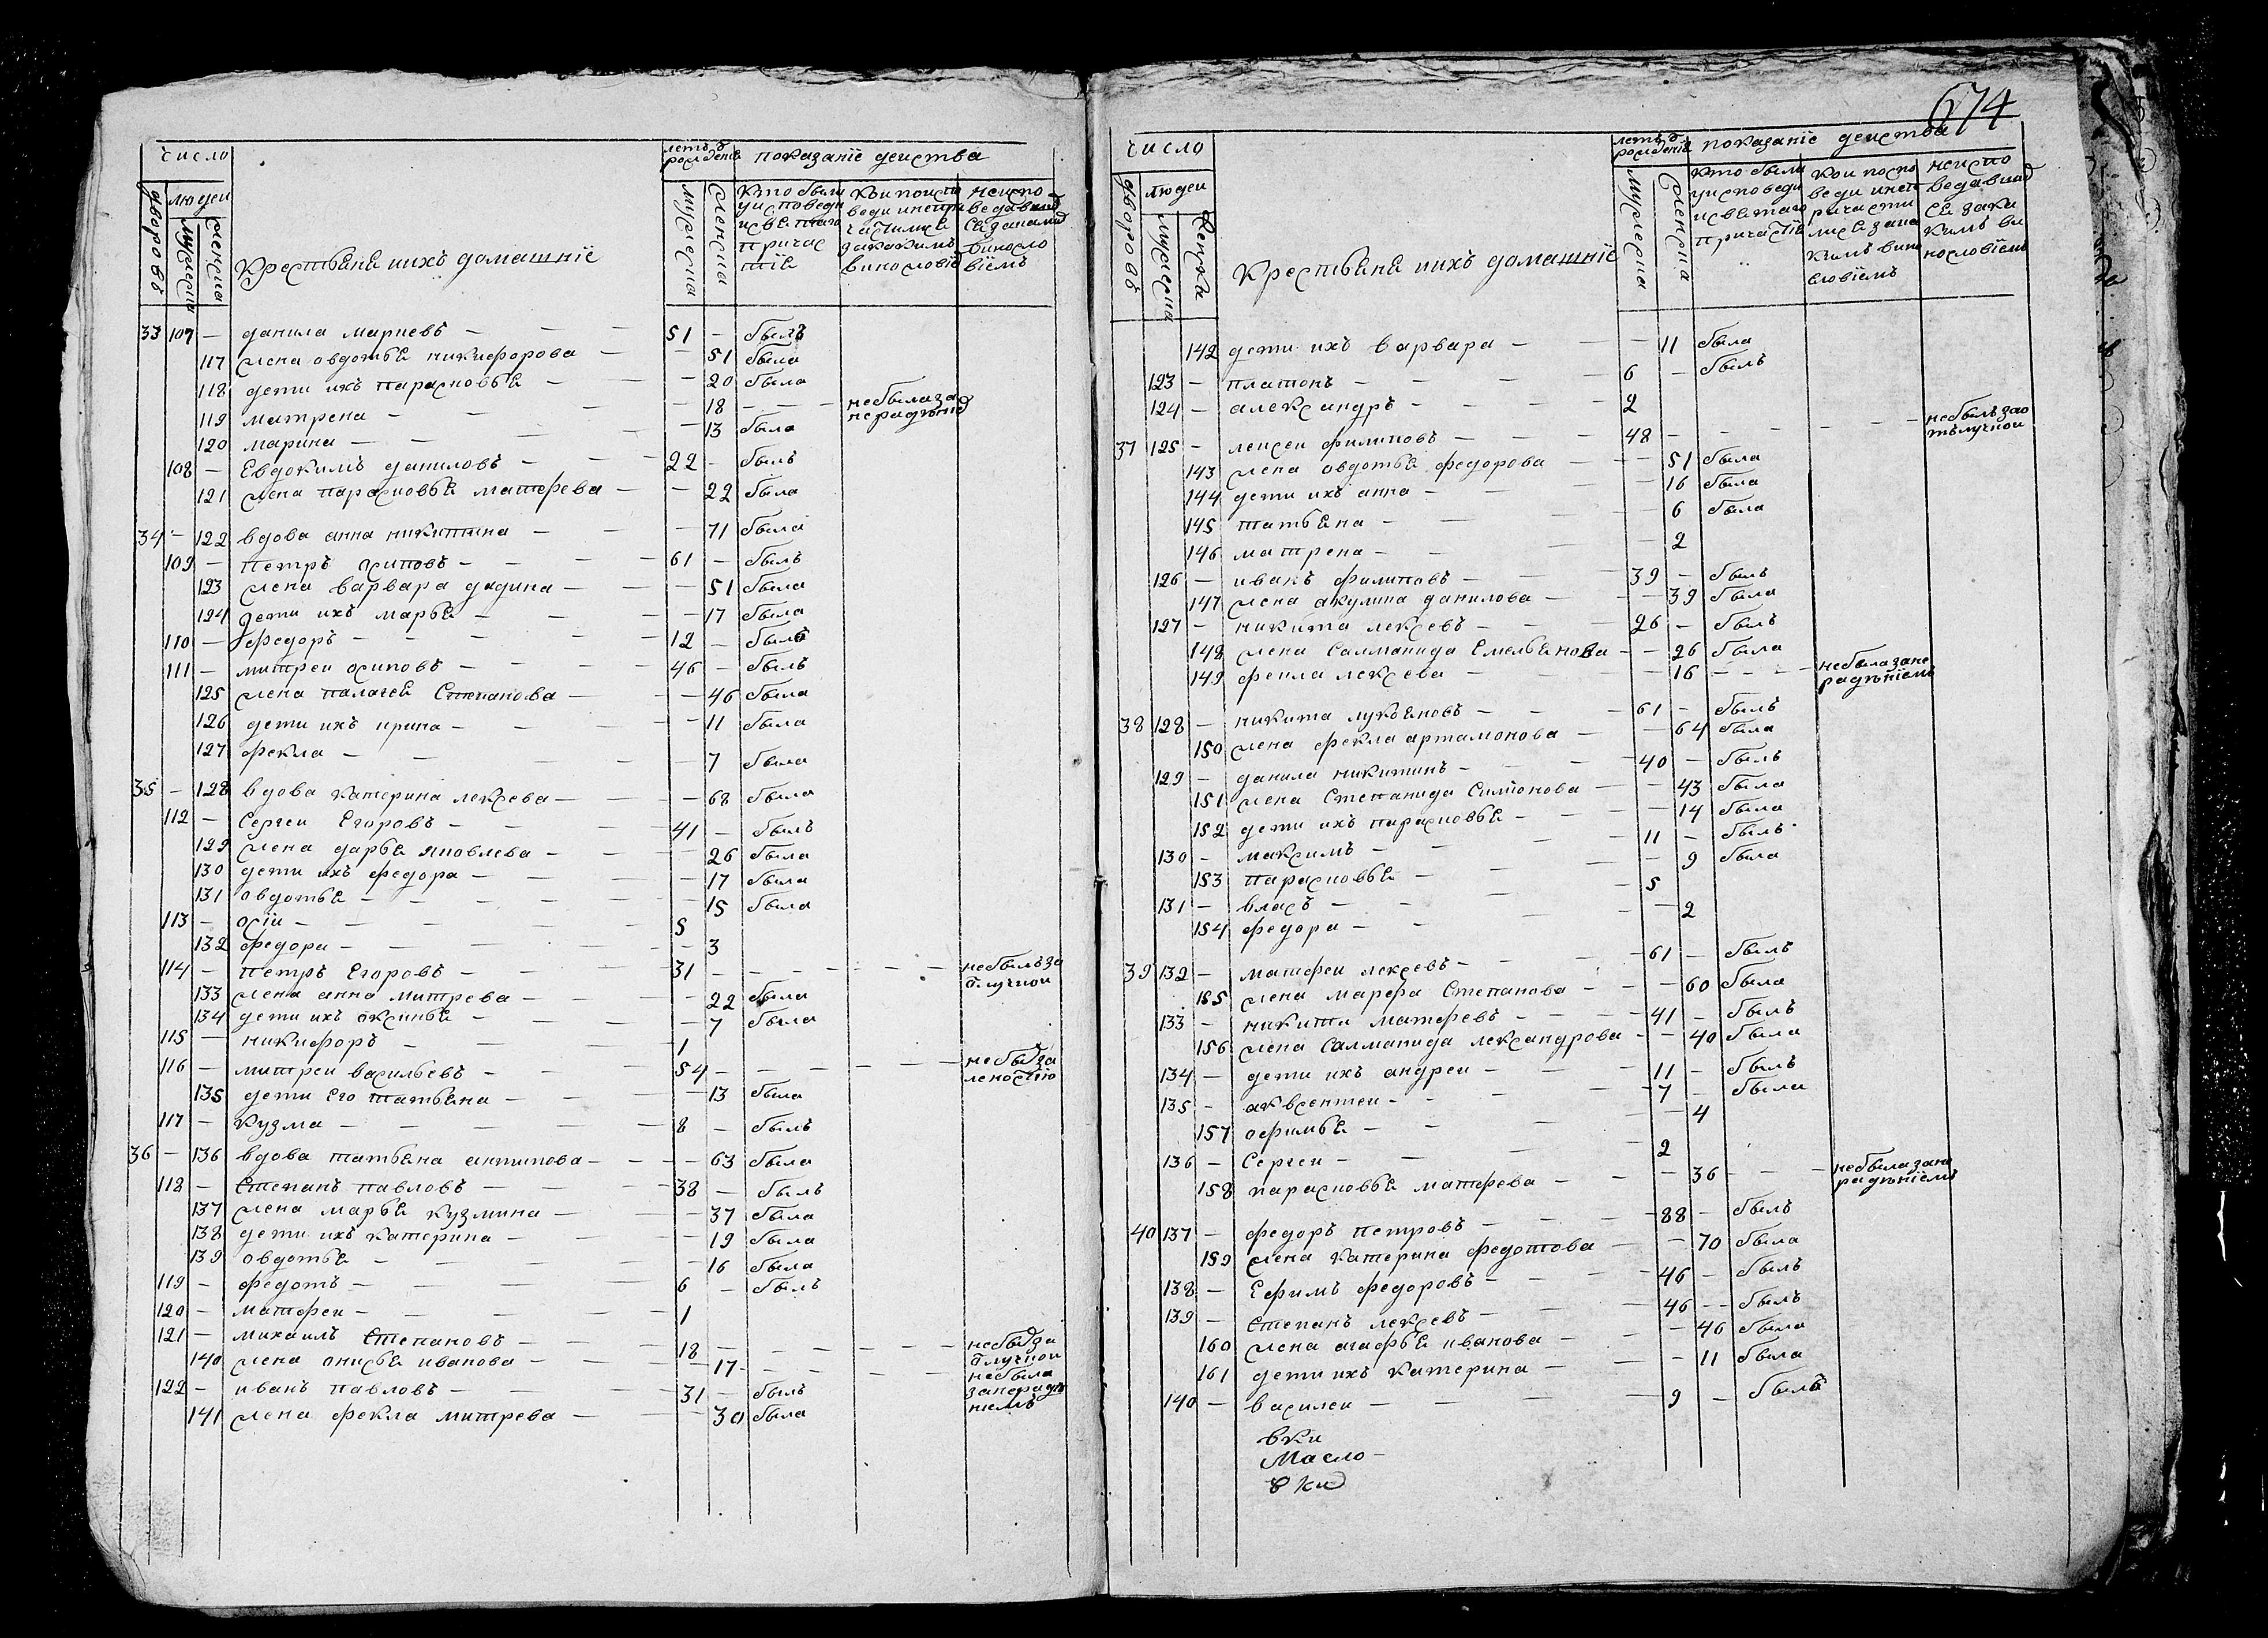 число
летъ ѿ рожденiѧ
показанiе деиства
дворовъ
людеи
мужеска
женска
Крестьѧнѧ иихъ домашнiе
мужеска
женска
кто были
уисповеди
исвѧтаго
причас
тiѧ
кои поиспо
веди инепри
частилисѧ
закакимъ
винословiемъ
неиспо
ведавших
сѧ заками
виносло
вiемъ
33 107 – данила марневъ – 51 – былъ
117 жена овдотьѧ никифорова – – 51 была
118 дети ихъ парасковьѧ – – 20 была
119 матрена – – 18 – – – небыла за нерадѣнiе
120 марина – – 13 была
108 – Евдокимъ даниловъ – 22 – былъ
121 жена парасковьѧ матфеева – – 22 была
34 – 122 вдова анна никитина – – 71 была
109 – петръ осиповъ – 61 – былъ
123 жена варвара дадина – – 51 была
124 дети ихъ марьѧ – – 17 была
110 – федоръ – 12 – былъ
111 – митреи осиповъ – 46 – былъ
125 жена палагеѧ Степанова – – 46 была
126 дети ихъ ирина – – 11 была
127 фекла – – 7 была
35 – 128 вдова катерина лексева – – 68 была
112 – Сергеи Егоровъ – 41 – былъ
129 жена дарьѧ Яковлева – – 26 была
130 дети ихъ федора – – 17 была
131 овдотьѧ – – 15 была
113 – осiи – 5
132 федора – – 3
114 – петръ Егоровъ – 31 – – – – небылъ за ѿлучкои
133 жена анна митрева – – 22 была
134 дети ихъ оксиньѧ – – 7 была
115 – никифоръ – 1
116 – митреи васильевъ – 54 – – – – небылъ за леностiю
135 дети Его татьѧна – – 13 была
117 – Кузма – 8 – былъ
36 – 136 вдова татьѧна антипова – – 63 была
118 – Степанъ павловъ – 38 – былъ
137 жена марьѧ кузмина – – 37 была
138 дети ихъ катерина – – 19 была
139 овдотьѧ – – 16 была
119 – федотъ – 6 – былъ
120 – матфеи – 1
121 – михаилъ Степановъ – 18 – – – – небылъ за ѿлучкои
140 жена онисьѧ иванова – – 17 – – – небыла занерадѣ нiемъ
122 – иванъ павловъ – 31 – былъ
141 жена фекла митрева – – 30 была
674
число
летъ ѿ рожденiѧ
показанiе деиства
дворовъ
людеи
мужеска
женски
Крестьѧнѧ иихъ домашнiе
мужеска
женска
кто были
уисповеди
исвѧтаго
причастiѧ
кои поиспо
веди инеп
ричасти
лисѧ зака
кимъ вино
словiемъ
неиспо
ведавших
сѧ заки
кимъ ви
нословiемъ
142 дети ихъ варвара – – 11 была
123 – платонъ – 6 – былъ
124 – александръ – 2
37 125 – лексеи филиповъ – 48 – – – – небылъ зао тълучкои
143 жена овдотьѧ федорова – – 51 была
144 дети ихъ анна – – 16 была
145 татьѧна – – 6 была
146 матрена – – 2
126 – иванъ филиповъ – 39 – былъ
147 жена акулина данилова – – 39 была
127 – никита лексевъ – 26 – былъ
148 жена Саламанида Емельѧнова – – 26 была
149 фекла лексева – – 16 – – – небыла зане радѣнiемъ
38 128 – никита лукоѧновъ – 61 – былъ
150 жена фекла артамонова – – 64 была
129 – данила никитинъ – 40 – былъ
151 жена Степанида Симiонова – – 43 была
152 дети ихъ парасковьѧ – – 14 была
130 – максимъ – 11 – былъ
153 парасковьѧ – – 9 была
131 – власъ – 5
154 федора – – 2
39 132 – матфеи лексевъ – 61 – былъ
155 жена марфа Степанова – – 60 была
133 – никита матфевъ – 41 – былъ
156 жена Саламанида лександрова – – 40 была
134 – дети ихъ андреи – 11 – былъ
135 – аквсентеи – 7 – была
157 офимьѧ – – 4
136 – Сергеи – 2
158 парасковьѧ матфева – – 36 – – – небыла зане радѣнiемъ
40 137 – федоръ петровъ – 88 – былъ
159 жена катерина федотова – – 70 была
138 – Ефимъ федоровъ – 46 – былъ
139 – Степанъ лексевъ – 46 – былъ
160 жена агафьѧ иванова – – 46 была
161 дети ихъ катерина – – 11 была
140 – василеи – 9 – былъ
вки
Масло –
вки